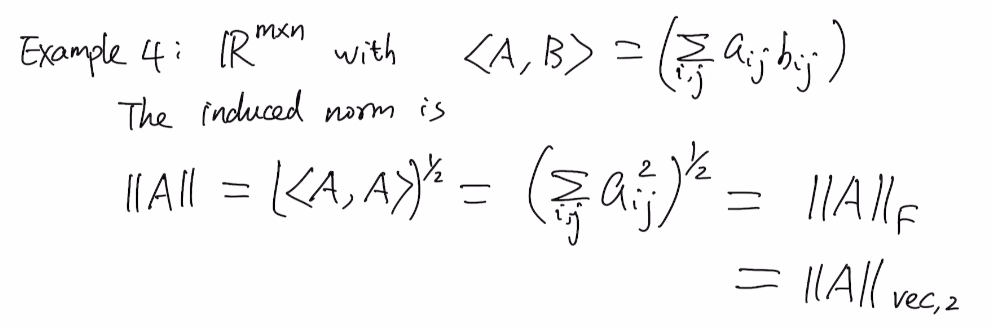 Example 4: ℝ^{m×n} with <A, B> = (∑_{i,j} a_{ij} b_{ij})
The induced norm is
||A|| = (<A, A>)^{1/2} = (∑_{i,j} a_{ij}^2)^{1/2} = ||A||_F
= ||A||_{vec,2}